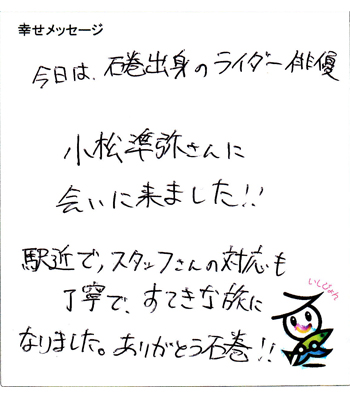 幸せメッセージ
今日は、石巻出身のライダー俳優
小松準弥さんに
会いに来ました!!
駅近で、スタッフさんの対応も
丁寧で、すてきな旅に
なりました。ありがとう石巻!!
いしぴょん